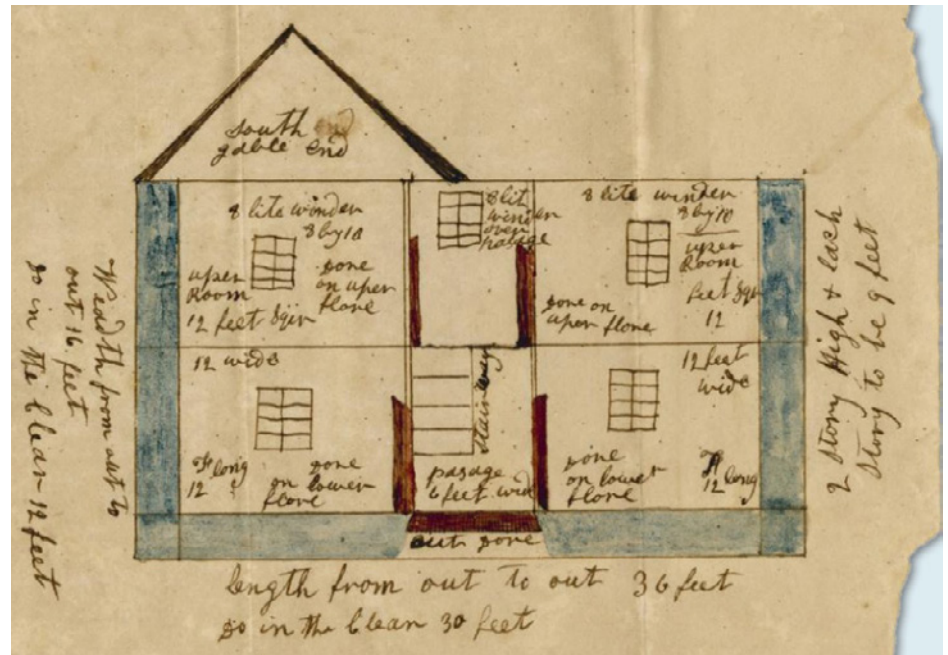 South end
gable end
8 lite winder
8 by 10
upper
Room
12 feet Sqir
Dore
on uper
flore
8 lit
winder
over
pasage
8 lite winder
8 by 10
upper
Room
feet Sqir
12
Dore on
uper flore
12 wide
Ft long
12
Dore
on lower
flore
Stairway
pasage
6 feet wid
12 feat
wide
Dore
on lower
flore
Ft
12 long
out Dore
Weadth from out to
out 16 feet
Do in the Clear 12 feet
2 Story High & each
Story to be 9 feet
length from out to out 36 feet
Do in the Clear 30 feet